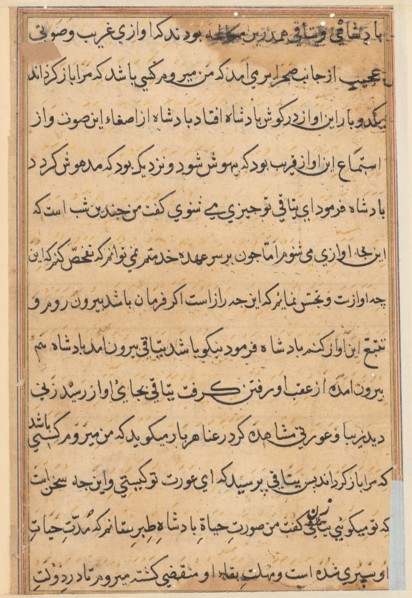 بادشاهی و یتاقی درین بودند که اوازی غریب و صوتی
عجیب از جانب صحرا برمی آمد که من میروم کسی باشد که مرا باز گرداند
یکدو بار این اواز در گوش بادشاه افتاد بادشاه از اصغاء این صوت و از
استماع این اواز قریب بود که بیهوش شود و نزدیک بود که مدهوش گردد
بادشاه فرمود ای یتاقی تو چیزی می شنوی گفت من چندین شب است که
این اوازی می شنوم اما چون بر سر عهده خدمتم نمی توانم که تفحص کنم که این
چه اوازست و تجسس نمایم که این چه رازاست اگر فرمان باشد بیرون روم و
تتبع این اواز کنم بادشاه فرمود نیکو باشد یتاقی بیرون امد بادشاه هم
بیرون امده از عقب او رفتن گرفت یتاقی بجای اواز رسید زنی
دید زیبا و عورتی مشاهده کرد رعنا هر بار میگوید که من میروم کسی باشد
که مرا باز گرداند بس یتاقی پرسید که ای عورت تو کیستی و این چه سخن است
که تو میگوئی زن گفت من صورت حیاة بادشاه طبرستانم که مدت حیات
او سپری شده است و مهلت بقاء او منقضی گشته میروم تا در دولت